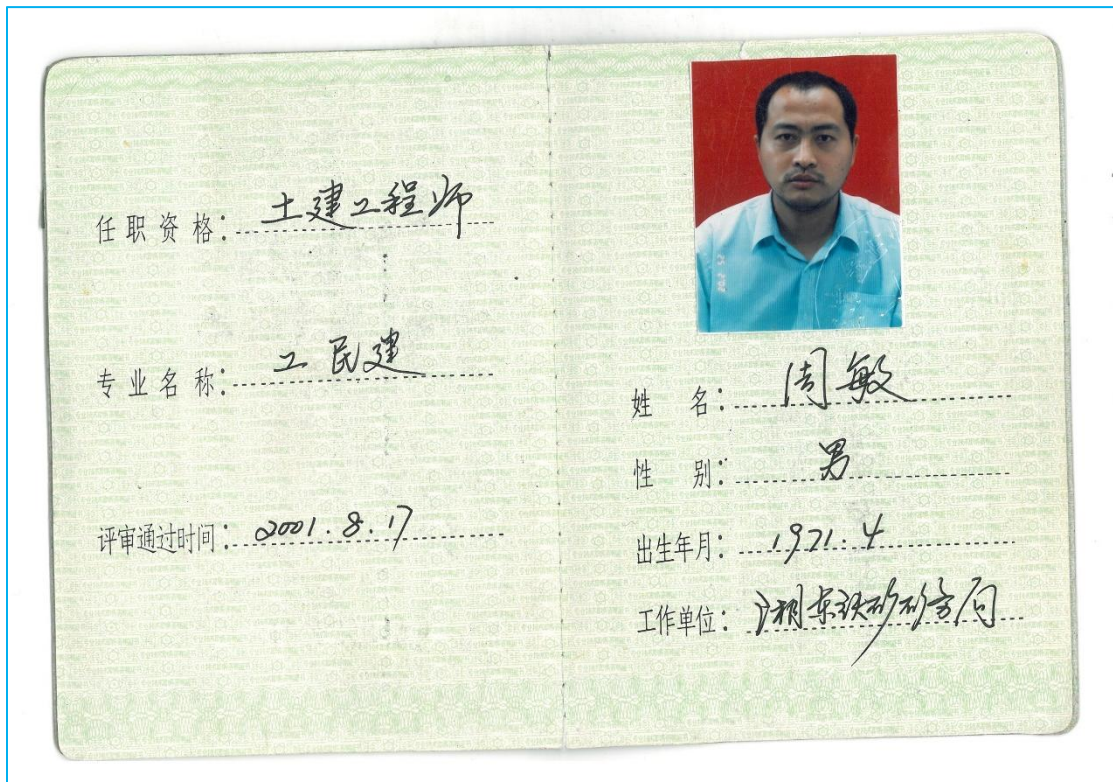 任职资格：土建工程师
专业名称：工民建
评审通过时间：2001.8.17
姓名：周敏
性别：男
出生年月：1971.4
工作单位：湘东铁矿矿务局